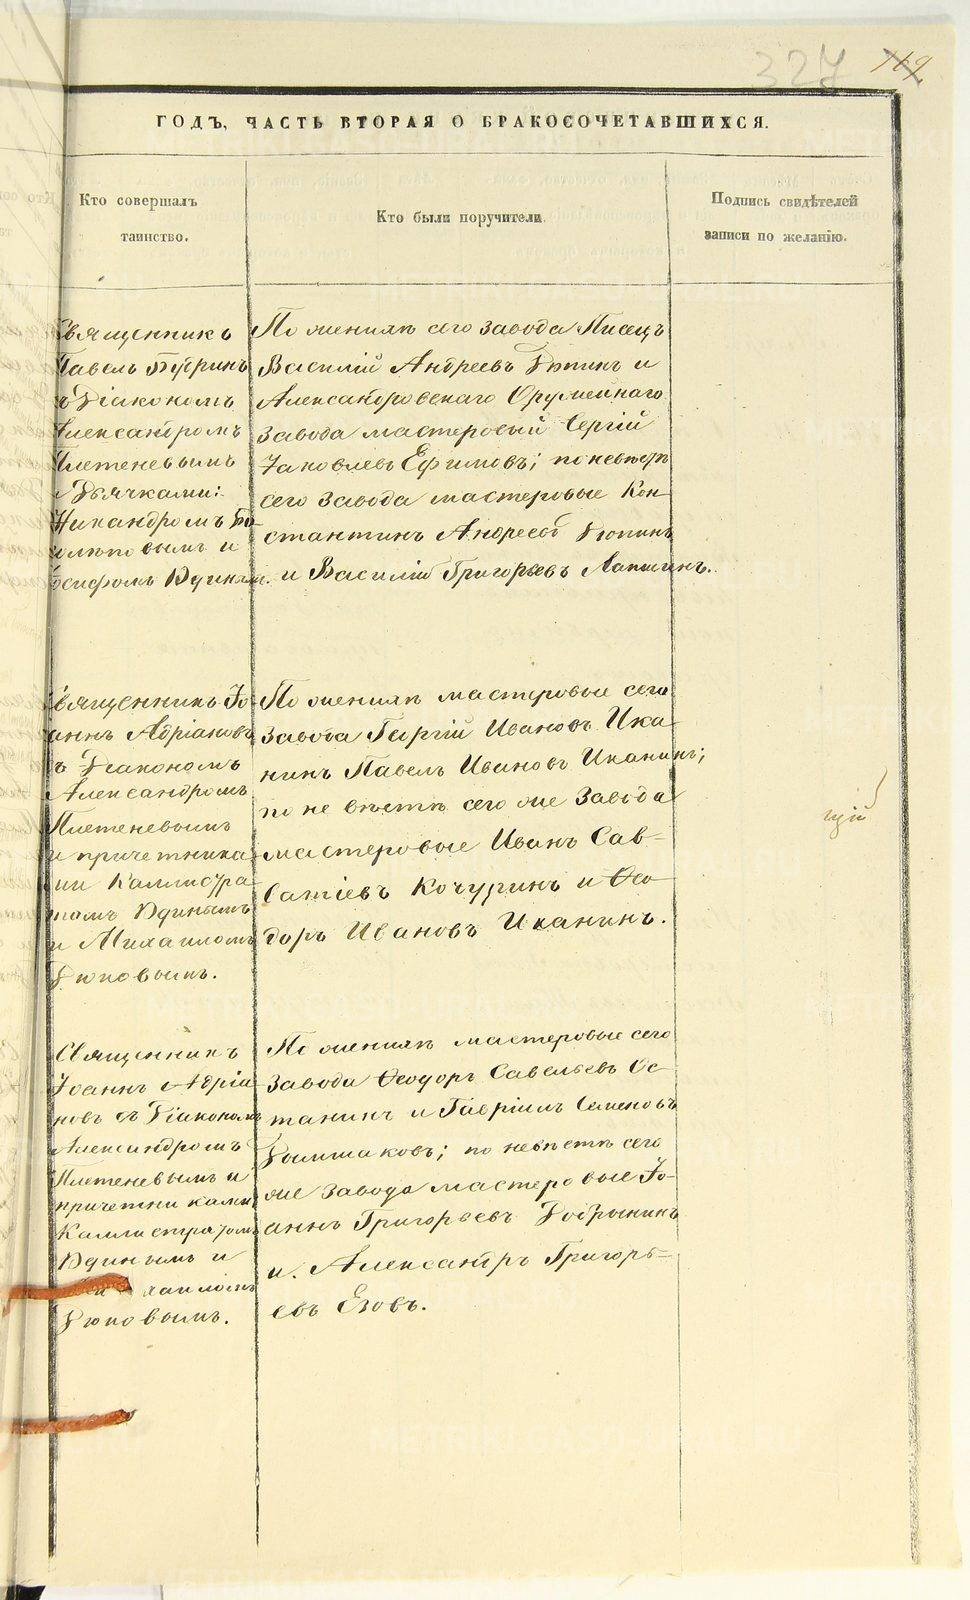 327 169
ГОДЪ, ЧАСТЬ ВТОРАЯ О БРАКОСОЧЕТАВШИХСЯ.
Кто совершалъ
таинство.
Кто были поручители.
Подпись свидѣтелей
записи по желанію.
Священникъ
Павелъ
съ Діакономъ
Александромъ
Плетеневымъ
и Дьячками:
Никандромъ
и
Іосифомъ Удинымъ.
По женихѣ сего завода Писецъ
Василій Андреевъ и
Александровскаго Оружейнаго
завода мастеровый Сергій
Іаковлевъ Ефимовъ; по невѣстѣ
сего завода мастеровые Кон-
стантинъ Андреевъ
и Василій Григорьевъ Лапшинъ.
Священникъ Іо-
аннъ Адріановъ
съ Діакономъ
Александромъ
Плетеневымъ
и причетника-
ми Каллистра-
томъ Удинымъ
и Михаиломъ
По женихѣ мастеровые сего
завода Георгій Ивановъ Ика-
нинъ Павелъ Ивановъ Иканинъ;
по не вѣстѣ сего же завода
мастеровые Иванъ Сав-
ватіевъ Кочуринъ и Ѳео-
доръ Ивановъ Иканинъ.
щій
Священникъ
Іоаннъ Адріа-
новъ съ Діакономъ
Александромъ
Плетеневымъ и
причетниками
Каллистратомъ
Удинымъ и
Михаиломъ
По женихѣ мастеровые сего
завода Ѳеодоръ Савельевъ Ос-
танинъ и Гавріилъ Семеновъ
по невѣстѣ сего
же завода мастеровые Іо-
аннъ Григорьевъ Добрынинъ
и. Александръ Григорь-
евъ Езовъ.